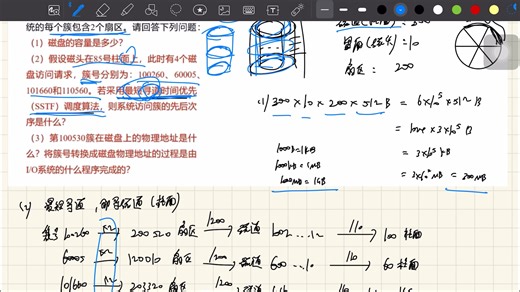 统的每个簇包含2个扇区。请回答下列问题：
（1）磁盘的容量是多少？
（2）假设磁头在85号柱面上，此时有4个磁
盘访问请求，簇号分别为：100260、60005、
101660和110560。若采用最短寻道时间优先
（SSTF）调度算法，则系统访问簇的先后次
序是什么？
（3）第100530簇在磁盘上的物理地址是什
么？将簇号转换成磁盘物理地址的过程是由
I/O系统的什么程序完成的？
=10
扇区： 200
(1) 300×10×200×512B = 6×10⁵×512B
= 3×10⁵ KB
= 3×10² MB = 300MB
1000B=1KB
1000KB=1MB
1000MB=1GB
簇号100260 ×2 200520 扇区 /200 磁道 1002...12 /10 100 柱面
60005 ×2 120010 扇区 /200 磁道 600...10 /10 60 柱面
101660 203320 扇区 /200